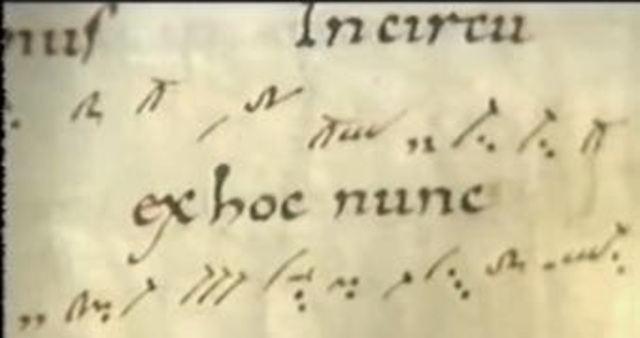 nus In circu
ex hoc nunc